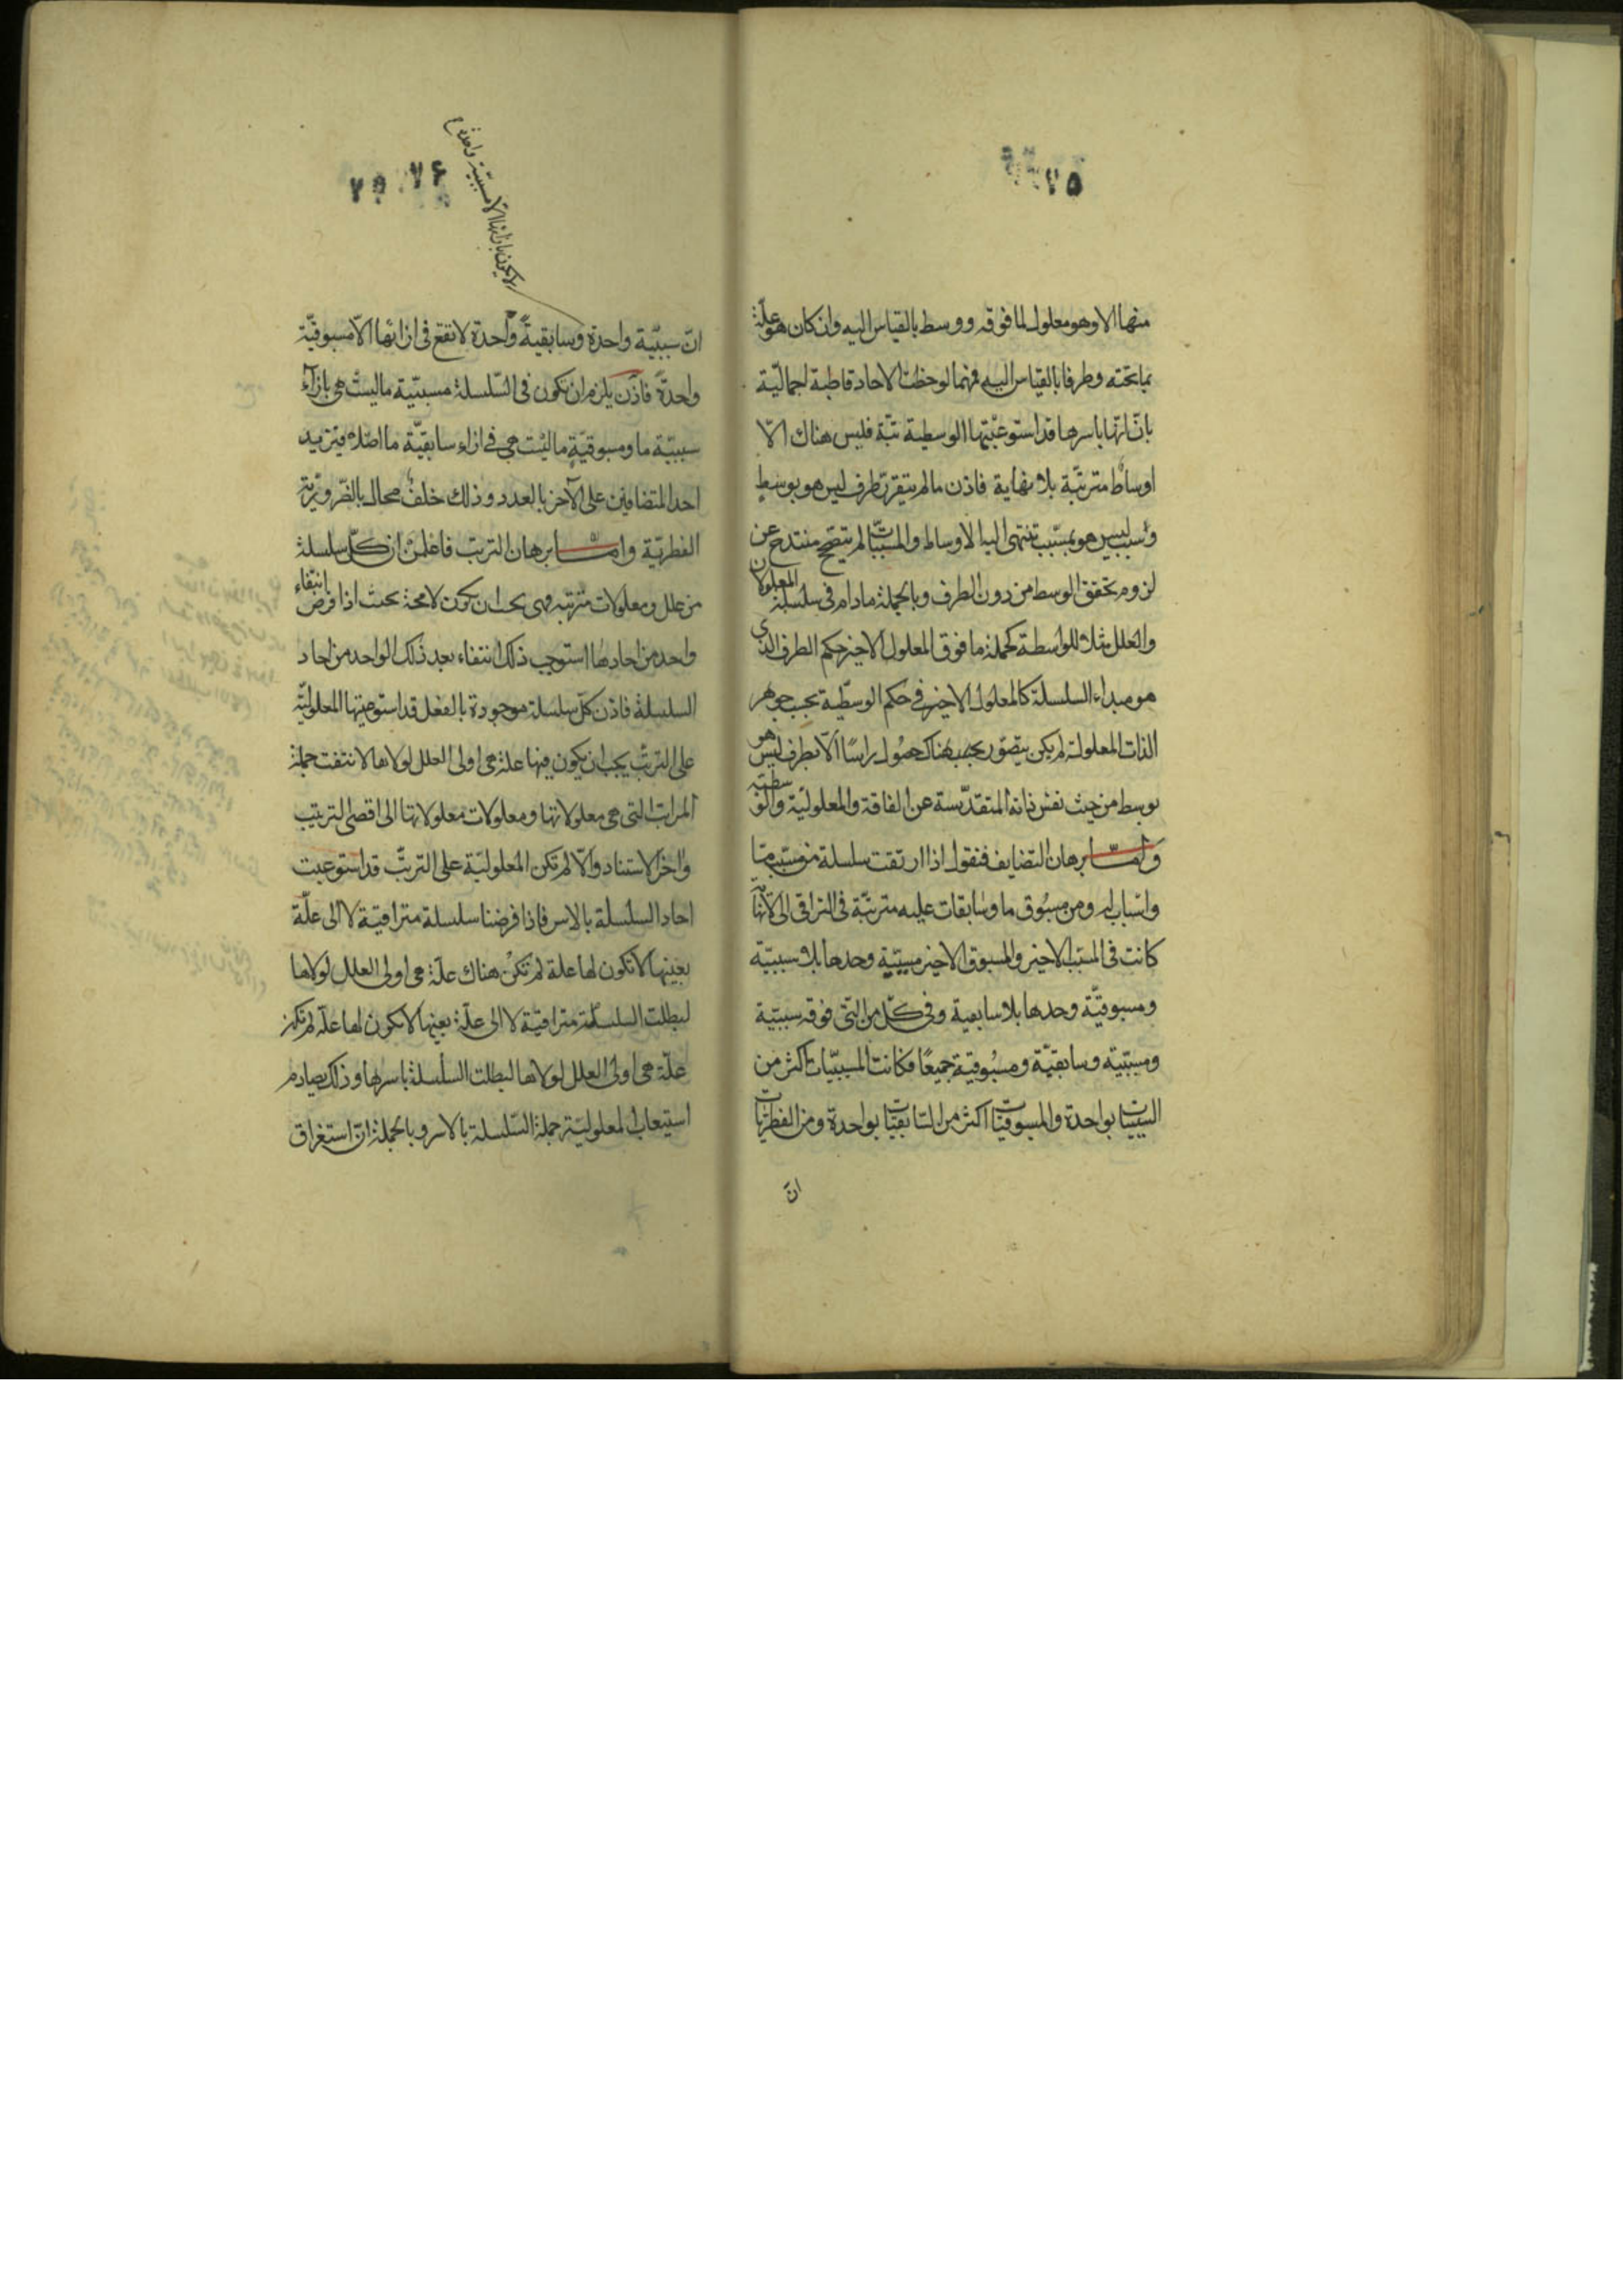 ٧٥
منها الا وهو معلول لما فوقه ووسط بالقياس اليه وان كان هو علّة
بما تحته وطرفا بالقياس اليه فهما لوحظت الاحاد قاطبة اجماليّة
بانّ انّها باسرها قد استوعبتها الوسطية بتّة فليس هناك الّا
اوساط مترتّبة بلا نهاية فاذن ما لم يتقرر طرف ليس هو بوسط
وسبب ليس هو بمسبّب تنتهي اليه الاوساط والمسبّبات لم يتصحّ منتدح عن
لزوم تحقق الوسط من دون الطرف وبالجملة مادام في سلسلة المعلولات
والعلل مثلا للواسطة كجملة ما فوق المعلول الاخير حكم الطرف الذي
هو مبداء السلسلة كالمعلول الاخير في حكم الوسطية بحسب جوهر
الذات المعلولة لم يكن يتصوّر بحسبه هناك حصول براسًا الّا بطرف ليس هو
بوسط من حيث نفس ذاته المتقدّسة عن الفاقة والمعلوليّة والوسطيّة
وامّا برهان التضايف فنقول اذا ارتقت سلسلة من مسبب ما
واسباب له ومن مسبُوق ما وسابقات عليه مترتبّة في التراقي الى لا نهاية
كانت في المسبّب الاخير والمسبوق الاخير مسببّية وحدها بلا سببيّة
ومسبوقيّة وحدها بلا سابقية وفي كلّ من التي فوقه سببيّة
ومسببّية وسابقيّة ومسبُوقية جميعًا فكانت المسببّيات اكثر من
السببيّات بواحدة والمسبوقيّات اكثر من السّابقيّات بواحدة ومن الفطريّات
انّ
٧٦
لا يكون بازائها الا مسببيّة واحدة
انّ سببيّة واحدة وسابقيةً واحدة لا تقع في ازائها الّا مسبوقيّة
واحدةً فاذن يلزم ان تكون في السّلسلة مسببّية ما ليست هي بازاء
سببيّة ما ومسبوقيّة ما ليْست هي في ازاء سابقيّة ما اصلا فيتزيد
احد المتضايفين على الآخر بالعدد وذلك خلف محال بالضّرورّية
الفطريّة وامّا برهان الترتب فاعلمن ان كلّ سلسلة
من علل ومعلولات مترتبه فهي يجب ان يكون لا محة بحيث اذا فرض انتفاء
واحد من احادها استوجب ذلك انتفاء بعد ذلك الواحد من احاد
السلسلة فاذن كلّ سلسلة موجودة بالفعل قد استوعبتها المعلوليّة
على الترتّب يجب ان يكون فيها علة هي اولى العلل لولاها لانتفت جملة
المراتب التي هي معلولاتها ومعلولات معلولاتها الى اقصى الترتيب
واخر الاستناد والّا لم تكن المعلوليّة على الترتّب قد استوعبت
احاد السلسلة بالاسر فاذا فرضنا سلسلة مترافيّة لا الى علّة
بعينها لا تكون لها علة لم تكنْ هناك علّة هي اولى العلل لولاها
لبطلت السلسلة مترافيّة لا الى علّة بعينها لا يكون لها علّة لم تكن
علّة هي اولى العلل لولاها لبطلت السلسلة باسرها وذلك يصادم
استيعاب المعلوليّة جملة السّلسلة بالاسر وبالجملة انّ استغراق